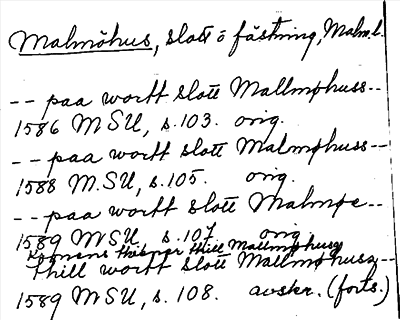 Malmöhus, slott o fästning, Malm.l.
-- paa wortt slott Mallmøhuss--
1586 MSU, s.103. orig.
-- paa wortt slott Malmøhuss--
1588 M.SU, s.105. orig.
-- paa wortt slott Malmøe--
1589 MSU s.107. orig
thill Mallmøhusz
thill wortt slott Mallmøhusz--
1589 MSU, s.108. avskr. (forts.)